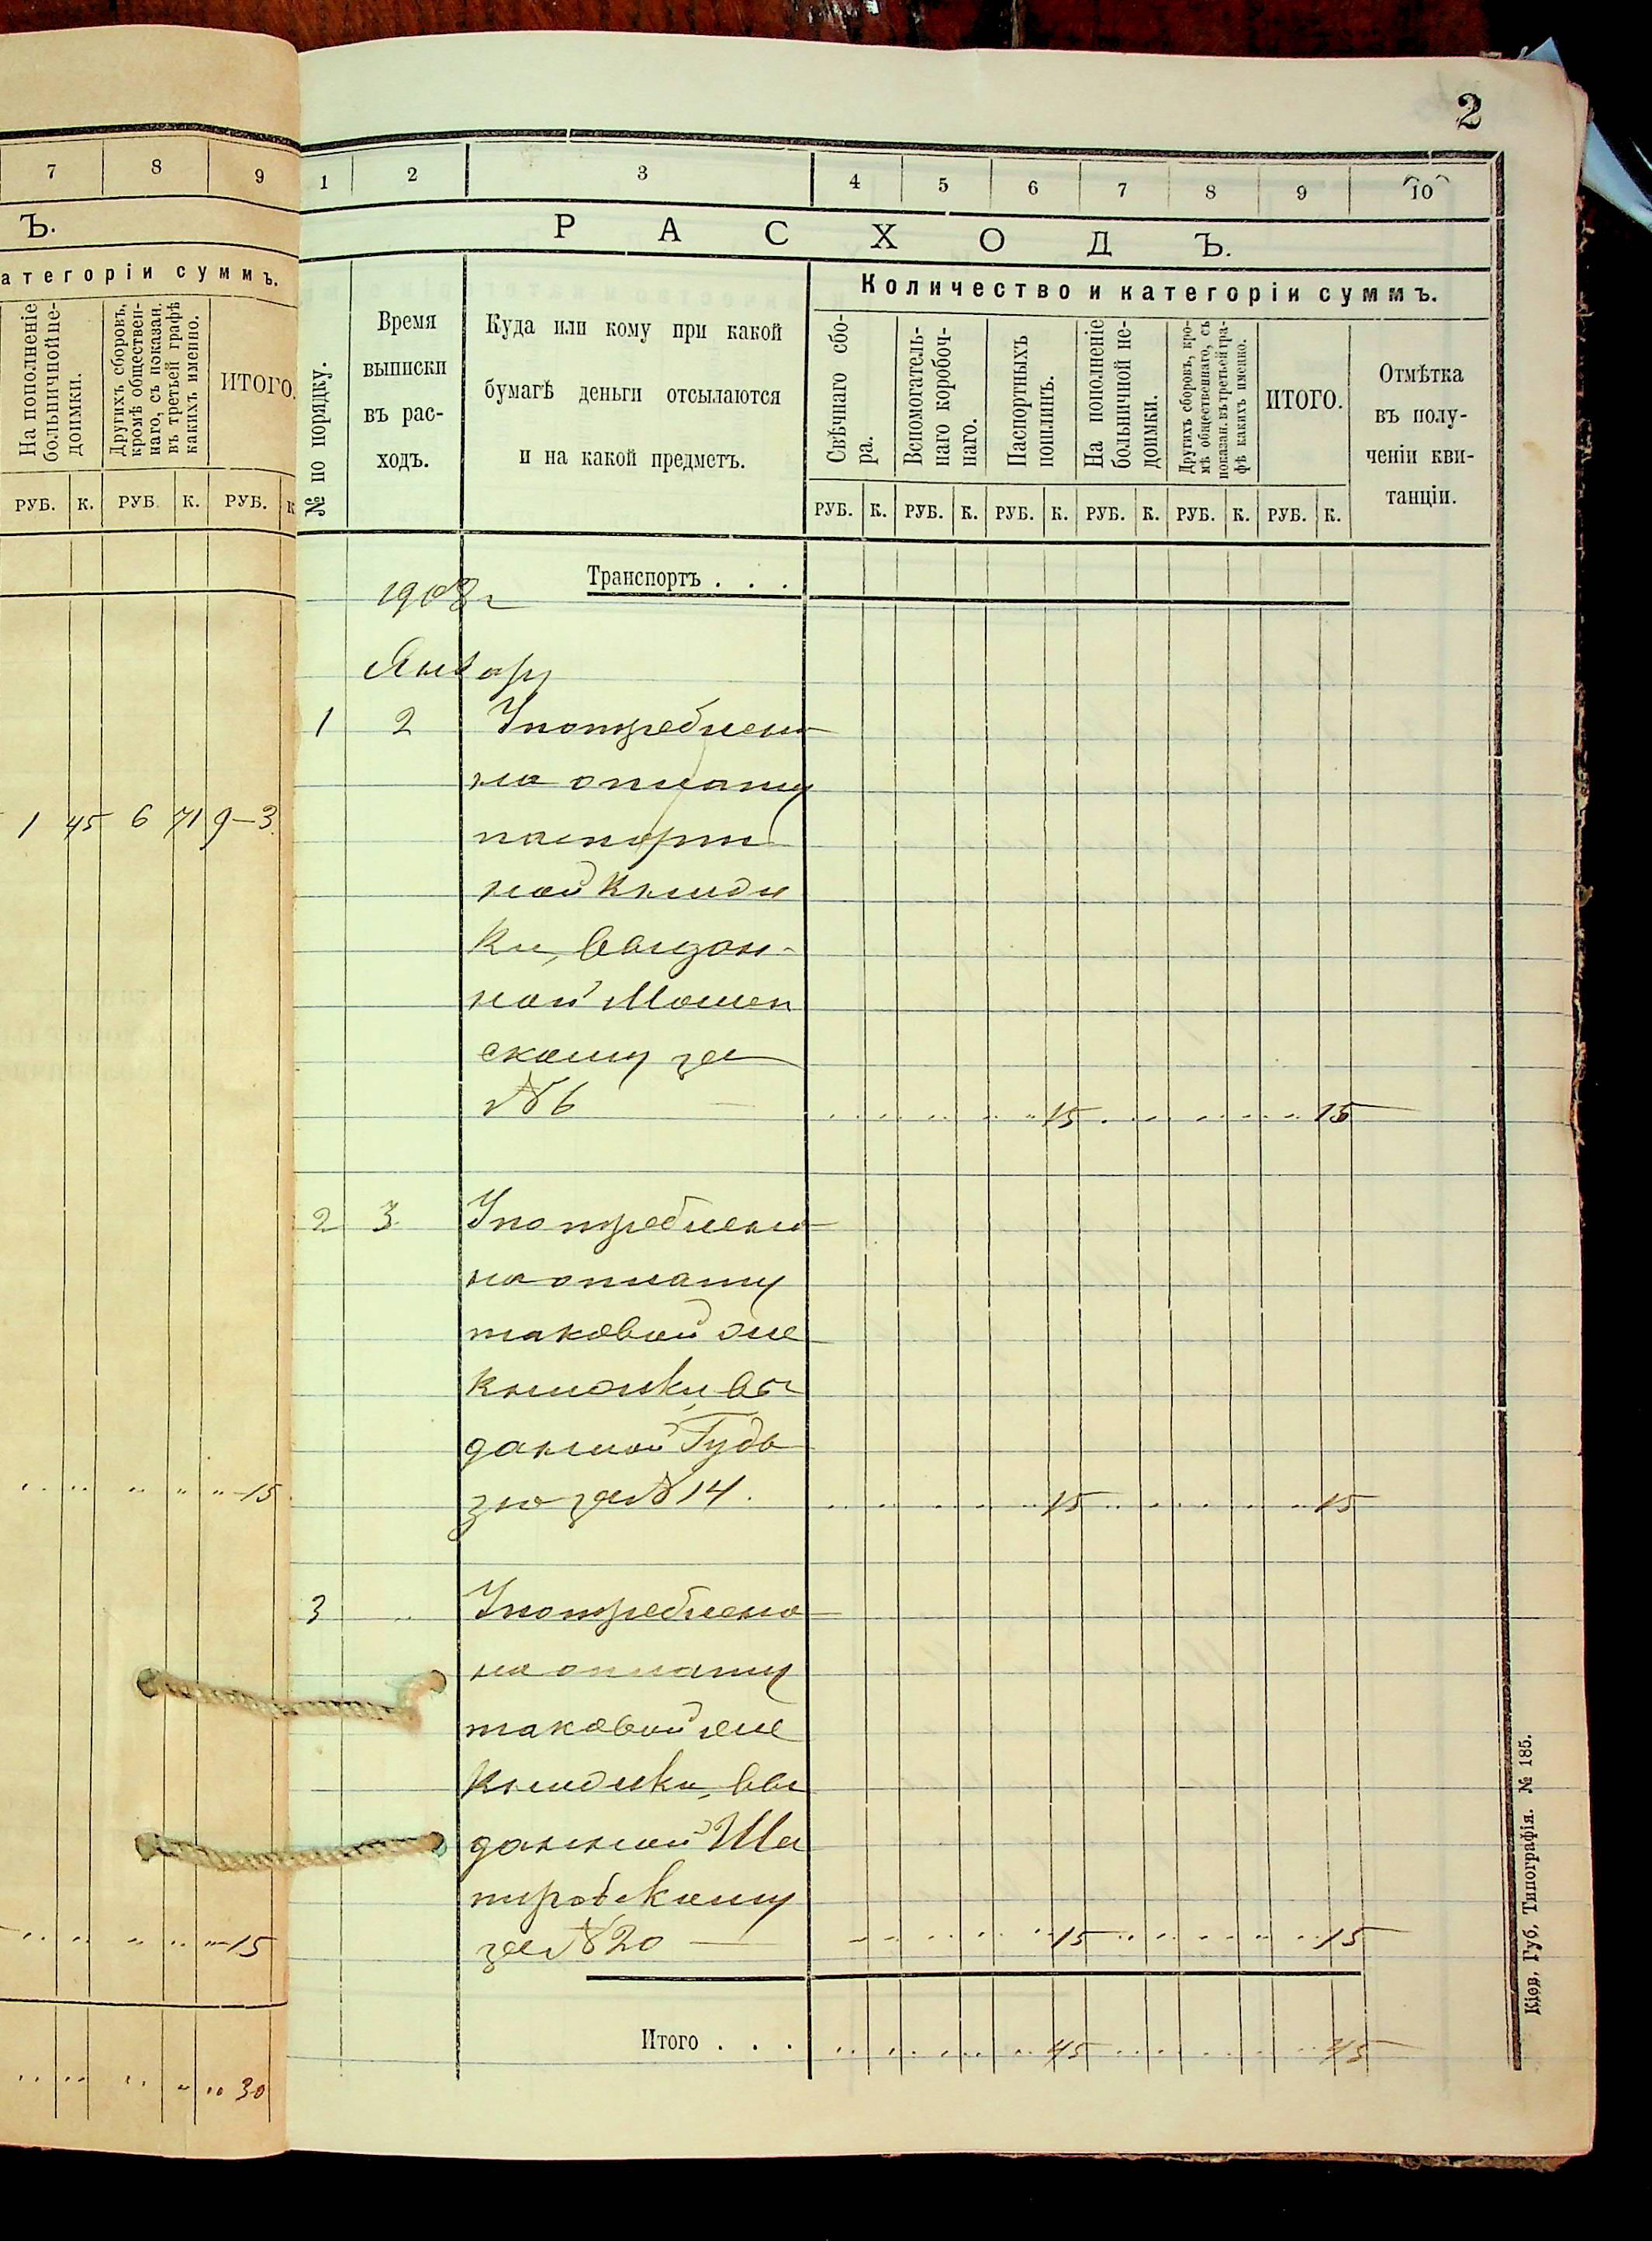 2
7 8 9
Ъ.
атегоріи суммъ.
На пополненіе
больничной не-
доимки.
Другихъ сборовъ,
кромѣ обществен-
наго, съ показан.
въ третьей графѣ
какихъ именно.
ИТОГО.
РУБ. К. РУБ. К. РУБ. К
1 45 6 71 9-3
„ „ „ „ „-15
„ „ „ „ „-15
„ „ „ „ „ 30
1 2 3 4 5 6 7 8 9 10
РАСХОДЪ.
№ по порядку.
Время
выписки
въ рас-
ходъ.
Куда или кому при какой
бумагѣ деньги отсылаются
и на какой предметъ.
Количество и категоріи суммъ.
Свѣчнаго сбо-
ра.
Вспомогатель-
наго коробоч-
наго.
Паспортныхъ
пошлинъ.
На пополненіе
больничной не-
доимки.
Другихъ сборовъ, кро-
мѣ общественнаго, съ
показан. въ третьей гра-
фѣ какихъ именно.
ИТОГО.
Отмѣтка
въ полу-
ченіи кви-
танціи.
РУБ. К. РУБ. К. РУБ. К. РУБ. К. РУБ. К. РУБ. К.
Транспортъ . . .
1908 г
Январь
1 2 Употреблено
на оплату
паспорт
ной книж
ки, выдан-
ной
скому за
№ 6 — 15 15
2 3 Употреблено
на оплату
таковой же
книжки, вы
данной
за № 14. 15 15
3 „ Употреблено
на оплату
таковой же
книжки, вы
данной Ша
пировскому
за № 20 — 15 15
Итого . . . 45 45
Кіев. Губ. Типографія. № 185.